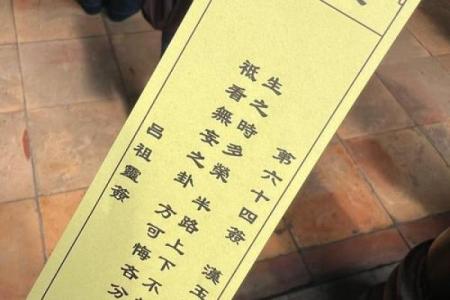 第六十四簽 漢玉
生之時多榮 半路上下不
祇看無妄之卦 方可悔吝分
呂祖靈簽